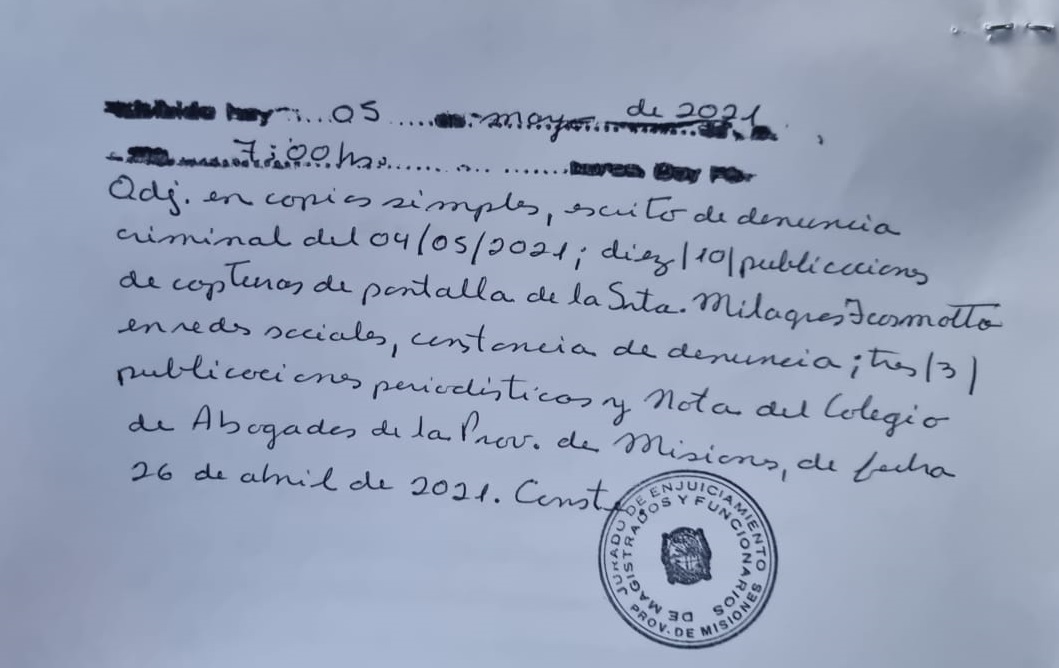 hoy 05 mayo de 2021
7:00 hs.
Adj. en copias simples, escrito de denuncia
criminal del 04/05/2021; diez/10/publicaciones
de capturas de pantalla de la Srta. Milagros
en redes sociales, constancia de denuncia; tres/3/
publicaciones periodísticas y Nota del Colegio
de Abogados de la Prov. de Misiones, de fecha
26 de abril de 2021. Conste.
JURADO DE ENJUICIAMIENTO
DE MAGISTRADOS Y FUNCIONARIOS
PROV. DE MISIONES